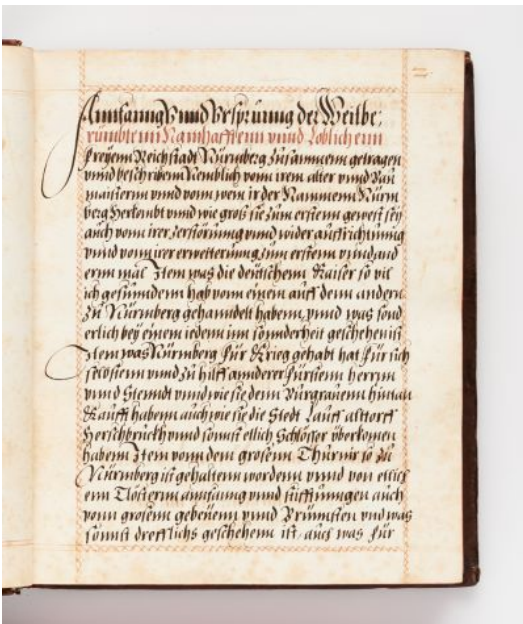 Annfanng Vnnd Vrsprŭnng der Weitbe:
rŭmbtenn Namhafftenn vnnd Loblichenn
Freyenn Reichstadt Nŭrnberg Zŭsamenn getragen
vnnd beschribenn Nemblich vonn irem alter vnnd Paŭ
maisternn vnnd vonn wem ir der Nammenn Nŭrm
berg Herkombt vnnd wie gros sie zŭm erstenn gewest sey
auch vonn irer zerstörŭnng vnnd wider auffrichtŭnng
vnnd vonn irer erweitterŭnng zŭm erstenn vnnd annd
ernn mal Item was die deŭtschenn Kaiser so vil
ich gefŭnndenn hab vonn einem auff denn andern
zŭ Nŭrnberg gehanndelt habenn, vnnd was sond
erlich bey einem iedenn inn sonnderheit geschehen ist
Item was Nŭrnberg Fŭr Krieg gehabt hat Fŭr sich
selbstenn vnnd Zŭ hilff annderer Fŭrstenn herrnn
vnnd Stenndt vnnd wie sie denn Bŭrgrauenn hinŭan
Kaufft habenn auch wie sie die Stedt Lauff alttorff
Herschbrŭckh vnnd sonnst etlich Schlösser vberkomen
habenn Item vonn dem grosenn Thŭrnir so zŭ
Nŭrnberg ist gehaltenn wordenn vnnd von etlich
enn Clösternn annfanng vnnd stifftŭnngen auch
vonn grosenn gebeŭenn vnnd Brŭnnsten vnd was
sonnst drefflichs geschehenn ist, auch was Fŭr